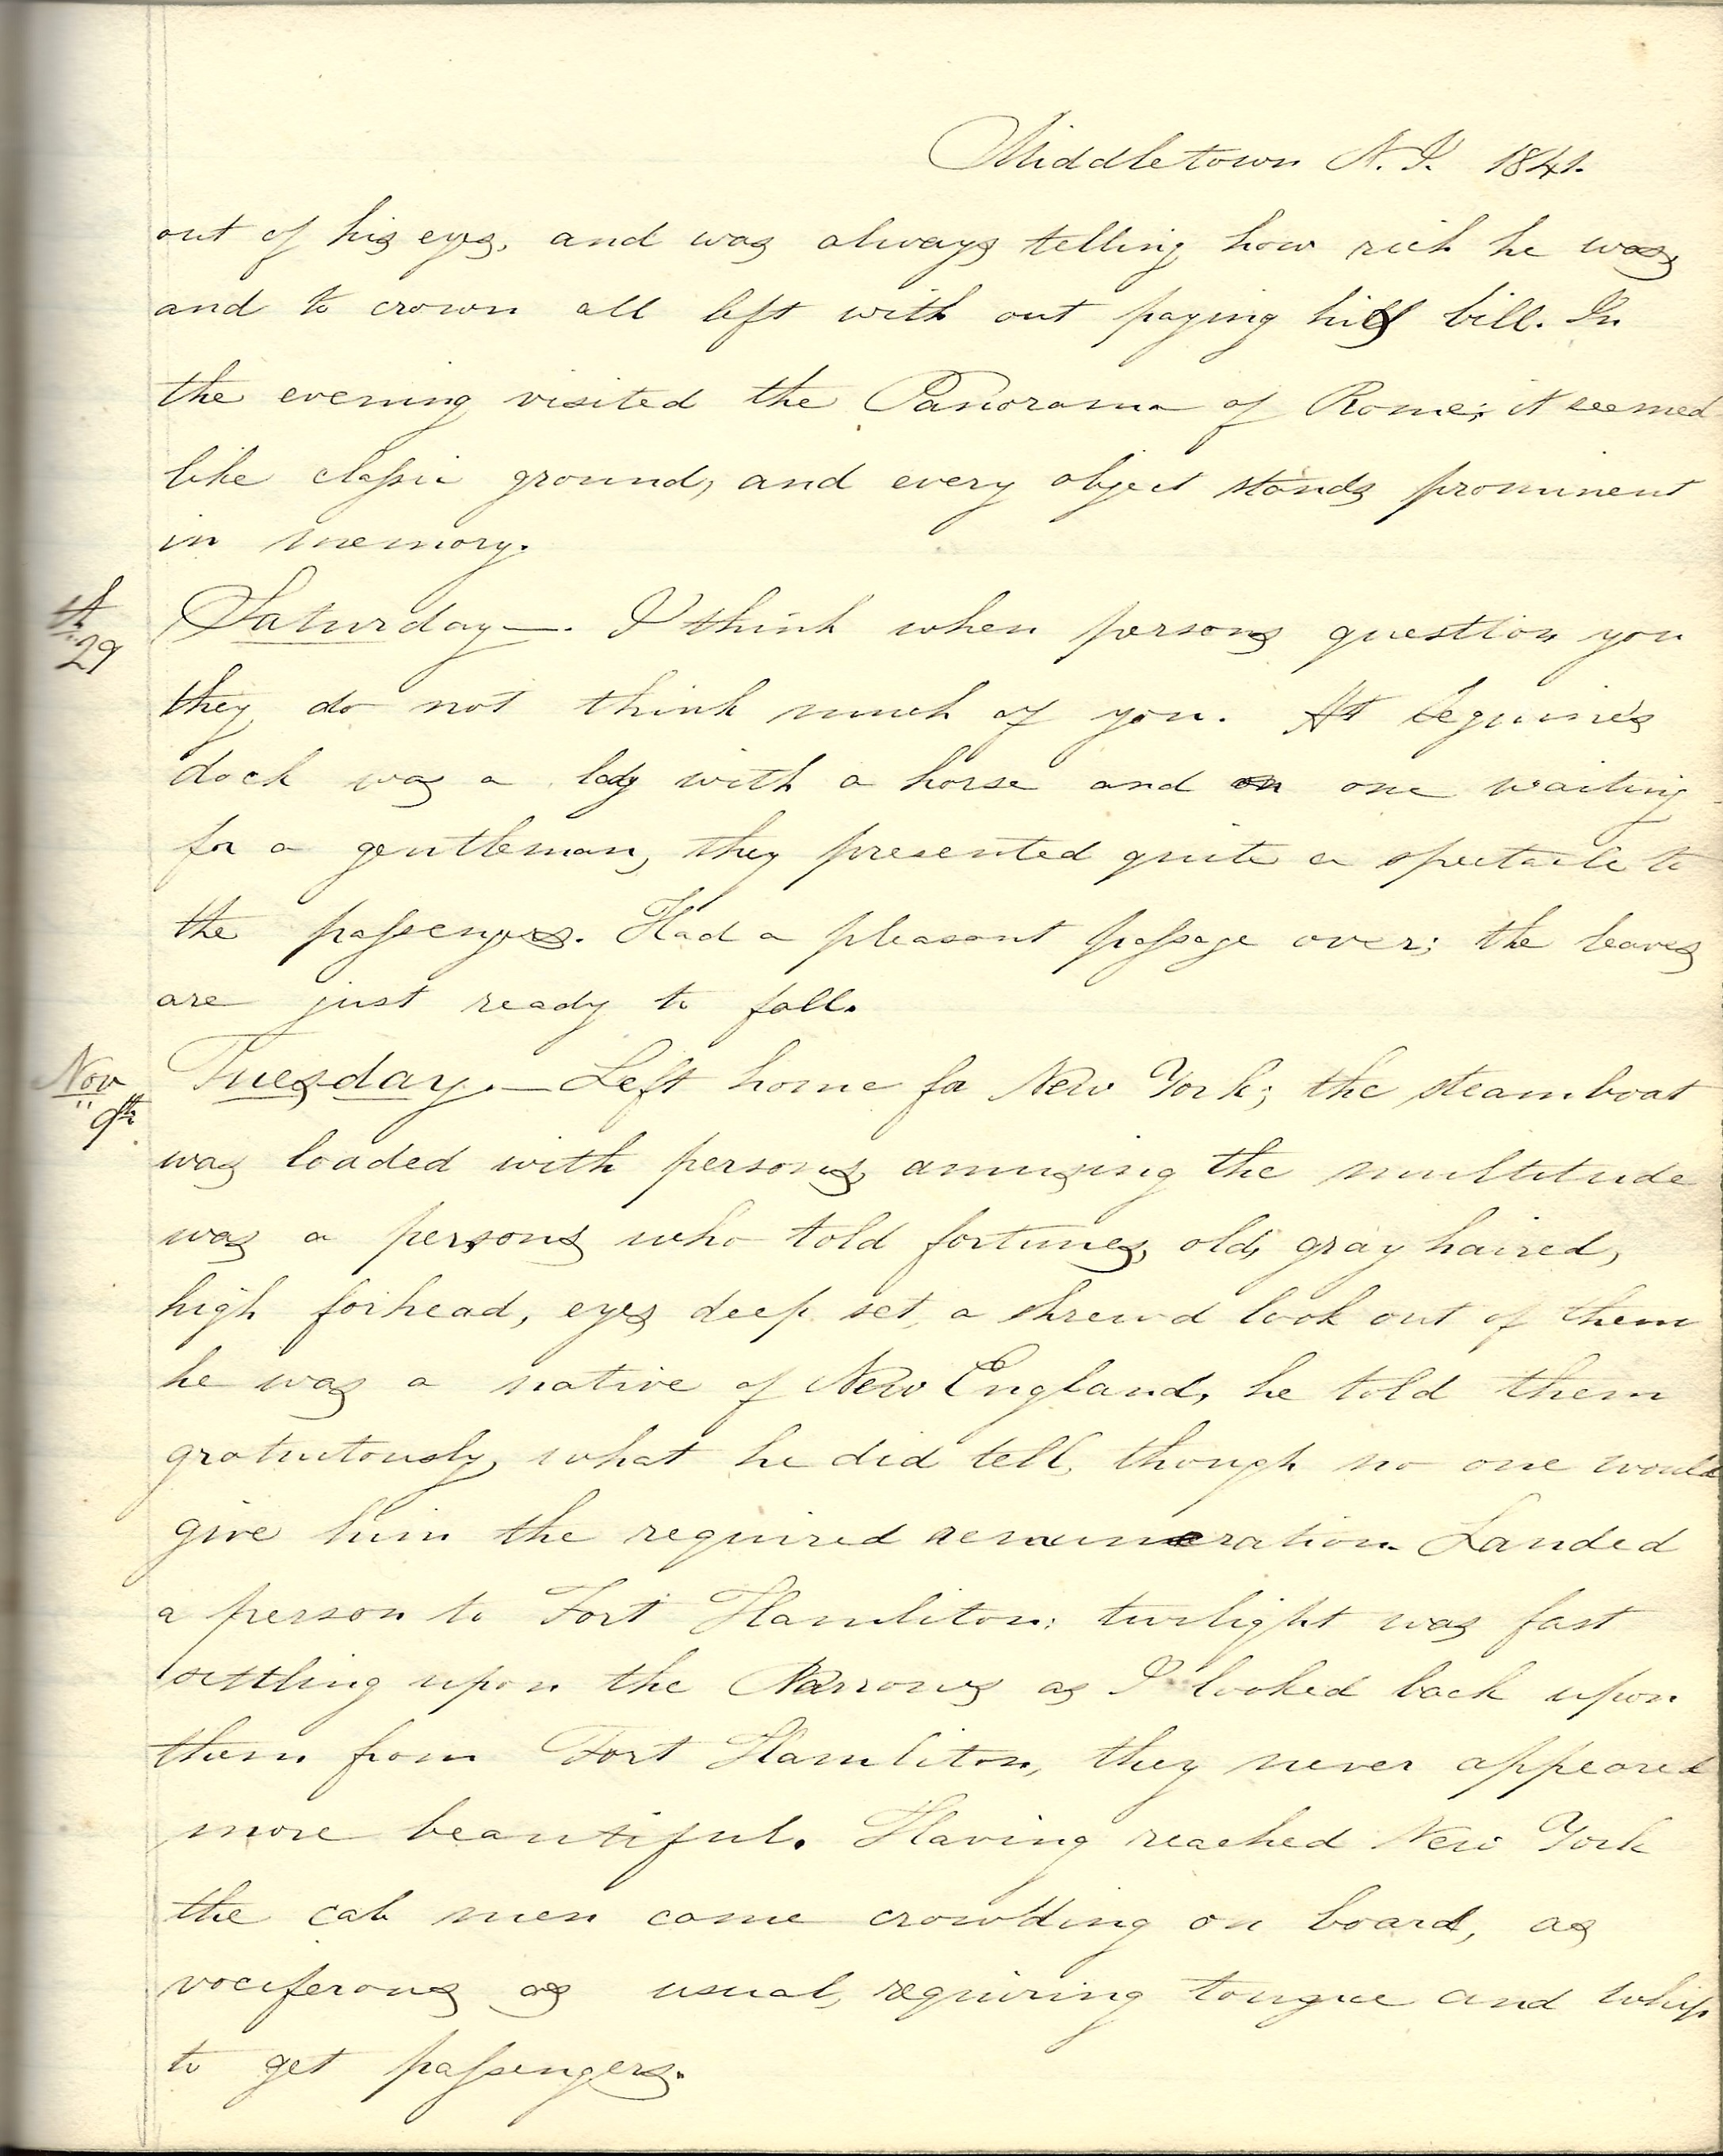 Middletown N. J. 1841.
out of his eyes, and was always telling how rich he was,
and to crown all left with out paying his bill. In
the evening visited the Panorama of Rome; it seemed
like classic ground, and every object stands prominent
in memory.
29 Saturday—. I think when persons question you
they do not think much of you. At Seguine's
dock was a lady with a horse and on one waiting
for a gentleman, they presented quite a spectacle to
the passengers. Had a pleasant passage over; the leaves
are just ready to fall.
Nov 9th Tuesday.— Left home for New York; the steamboat
was loaded with persons, amusing the multitude
was a persons who told fortunes, old, gray haired,
high forhead, eyes deep set, a shrewd look out of them
he was a native of New England, he told them
gratuitously, what he did tell, though no one would
give him the required remuneration. Landed
a person to Fort Hamiliton; twilight was fast
settling upon the Narrows as I looked back upon
them from Fort Hamiliton, they never appeared
more beautiful. Having reached New York
the cab men came crowding on board, as
vociferous as usual, requiring tongue and whip
to get passengers.